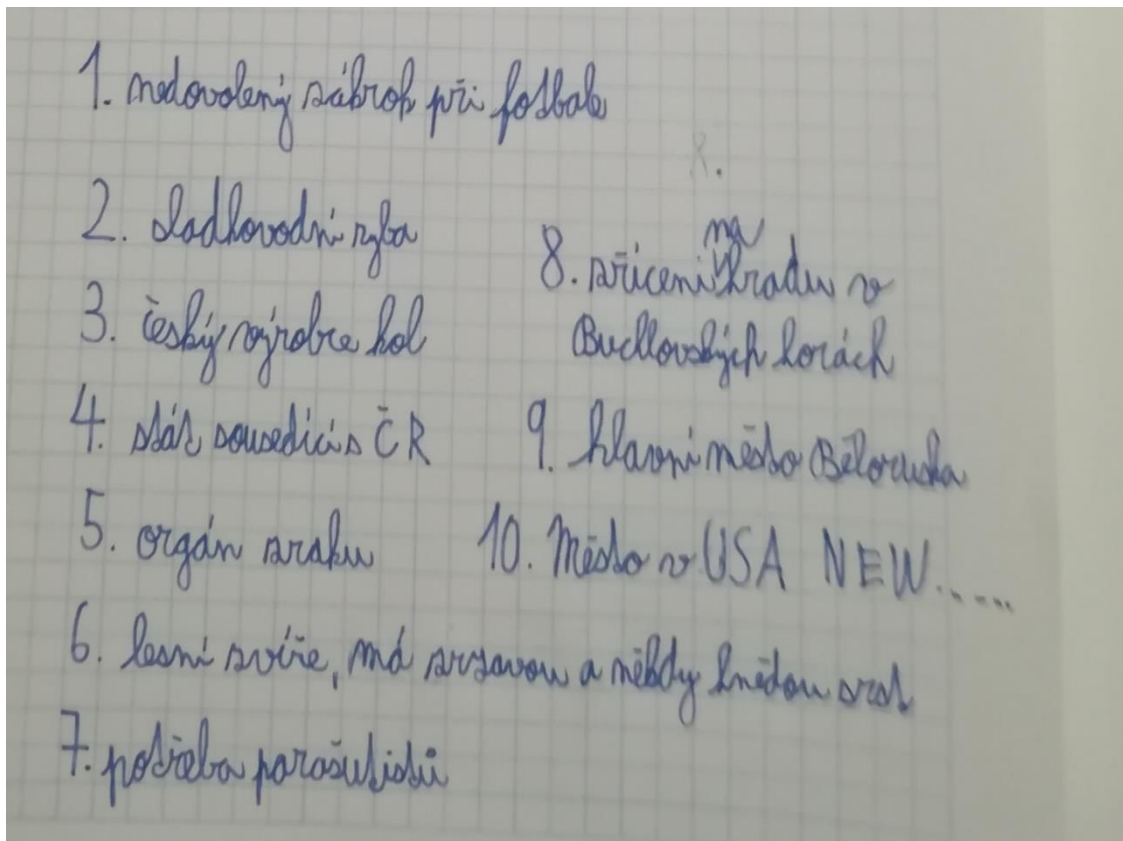 1. nedovolený zákrok při fotbale
2. sladkovodní ryba
3. český výrobce kol
4. stát sousedící s ČR
5. orgán zraku
6. lesní zvíře, má zrzavou a někdy hnědou srst
7. potřeba parašutistů
8.
na
8. zřícenina hradu v
Buchlovských horách
9. hlavní město Běloruska
10. Město v USA NEW.....